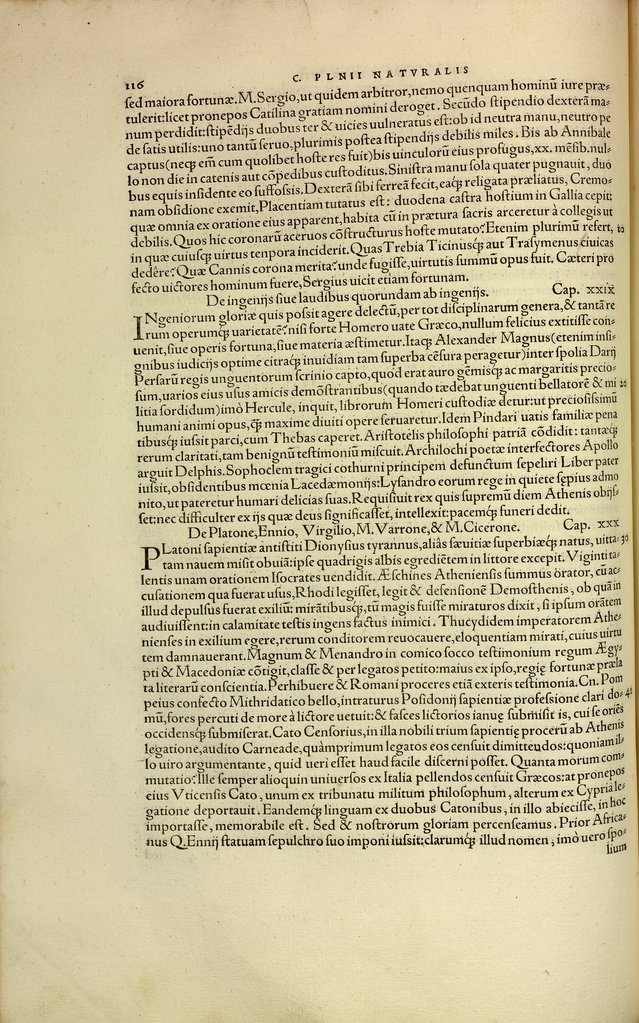 116
C. PLNII NATVRALIS
sed maiora fortunæ. M. Sergio, ut quidem arbitror, nemo quenquam hominũ iure præ-
tulerit: licet pronepos Catilina gratiam nomini deroget. Secũdo stipendio dexterã ma-
num perdidit: stipẽdijs duobus ter & uicies uulneratus est: ob id neutra manu, neutro pe
de satis utilis: uno tantũ seruo, plurimis postea stipendijs debilis miles. Bis ab Annibale
captus (neq; em̃ cum quolibet hoste res fuit) bis uinculorũ eius profugus, xx. mẽsib. nul-
lo non die in catenis aut cõpedibus custoditus. Sinistra manu sola quater pugnauit, duo
bus equis insidente eo suffossis. Dexterã sibi ferreã fecit, eaq; religata præliatus, Cremo-
nam obsidione exemit, Placentiam tutatus est: duodena castra hostium in Gallia cepit:
quæ omnia ex oratione eius apparent, habita cũ in prætura sacris arceretur à collegis ut
debilis. Quos hic coronarũ aceruos cõstructurus hoste mutato? Etenim plurimũ refert, 10
in quæ cuiusq; uirtus tempora inciderit. Quas Trebia Ticinusq; aut Trasymenus ciuicas
dedêre? Quæ Cannis corona merita? unde fugisse, uirtutis summũ opus fuit. Cæteri pro
fecto uictores hominum fuere, Sergius uicit etiam fortunam.
De ingenijs siue laudibus quorundam ab ingenijs. Cap. XXIX
INgeniorum gloriæ quis possit agere delectũ, per tot disciplinarum genera, & tantã re
rum operumq; uarietatẽ? nisi forte Homero uate Græco, nullum felicius extitisse con-
uenit, siue operis fortuna, siue materia æstimetur. Itaq; Alexander Magnus (etenim insi-
gnibus iudicijs optime citraq; inuidiam tam superba cẽsura peragetur) inter spolia Darij
Persarũ regis unguentorum scrinio capto, quod erat auro gẽmisq; ac margaritis precio-
sum, uarios eius usus amicis demõstrantibus (quando tædebat unguenti bellatorẽ & mi 20
litia sordidum) imò Hercule, inquit, librorum Homeri custodiæ detur: ut preciosissimũ
humani animi opus, q̃ maxime diuiti opere seruaretur. Idem Pindari uatis familiæ pena
tibusq; iussit parci, cum Thebas caperet. Aristotelis philosophi patriã cõdidit: tantæq;
rerum claritati, tam benignũ testimoniũ miscuit. Archilochi poetæ interfectores Apollo
arguit Delphis. Sophoclem tragici cothurni principem defunctum sepeliri Liber pater
iussit, obsidentibus mœnia Lacedæmonijs: Lysandro eorum rege in quiete sępius admo
nito, ut pateretur humari delicias suas. Requisiuit rex quis supremũ diem Athenis obijs-
set: nec difficulter ex ijs quæ deus significasset, intellexit: pacemq; funeri dedit.
De Platone, Ennio, Virgilio, M. Varrone, & M. Cicerone. Cap. XXX
PLatoni sapientiæ antistiti Dionysius tyrannus, aliâs sæuitiæ superbiæq; natus, uitta- 30
tam nauem misit obuiã: ipse quadrigis albis egrediẽtem in littore excepit. Viginti ta-
lentis unam orationem Isocrates uendidit. Æschines Atheniensis summus orator, cũ ac-
cusationem qua fuerat usus, Rhodi legisset, legit & defensionẽ Demosthenis, ob quã in
illud depulsus fuerat exiliũ: mirãtibusq;, tũ magis fuisse miraturos dixit, si ipsum orãtem
audiuissent: in calamitate testis ingens factus inimici. Thucydidem imperatorem Athe-
nienses in exilium egere, rerum conditorem reuocauere, eloquentiam mirati, cuius uirtu
tem damnauerant. Magnum & Menandro in comico socco testimonium regum Ægy-
pti & Macedoniæ cõtigit, classe & per legatos petito: maius ex ipso, regię fortunæ præla
ta literarũ conscientia. Perhibuere & Romani proceres etiã exteris testimonia. Cn. Pom
peius confecto Mithridatico bello, intraturus Posidonij sapientiæ professione clari do- 40
mũ, fores percuti de more à lictore uetuit: & fasces lictorios ianuę submisit is, cui se oriẽs
occidensq; submiserat. Cato Censorius, in illa nobili trium sapientię procerũ ab Athenis
legatione, audito Carneade, quàmprimum legatos eos censuit dimittendos: quoniam il-
lo uiro argumentante, quid ueri esset haud facile discerni posset. Quanta morum com-
mutatio? Ille semper alioquin uniuersos ex Italia pellendos censuit Græcos: at pronepos
eius Vticensis Cato, unum ex tribunatu militum philosophum, alterum ex Cypria le-
gatione deportauit. Eandemq; linguam ex duobus Catonibus, in illo abiecisse, in hoc
importasse, memorabile est. Sed & nostrorum gloriam percenseamus. Prior Africa-
nus Q. Ennij statuam sepulchro suo imponi iussit: clarumq; illud nomen, imò uero spo-
lium